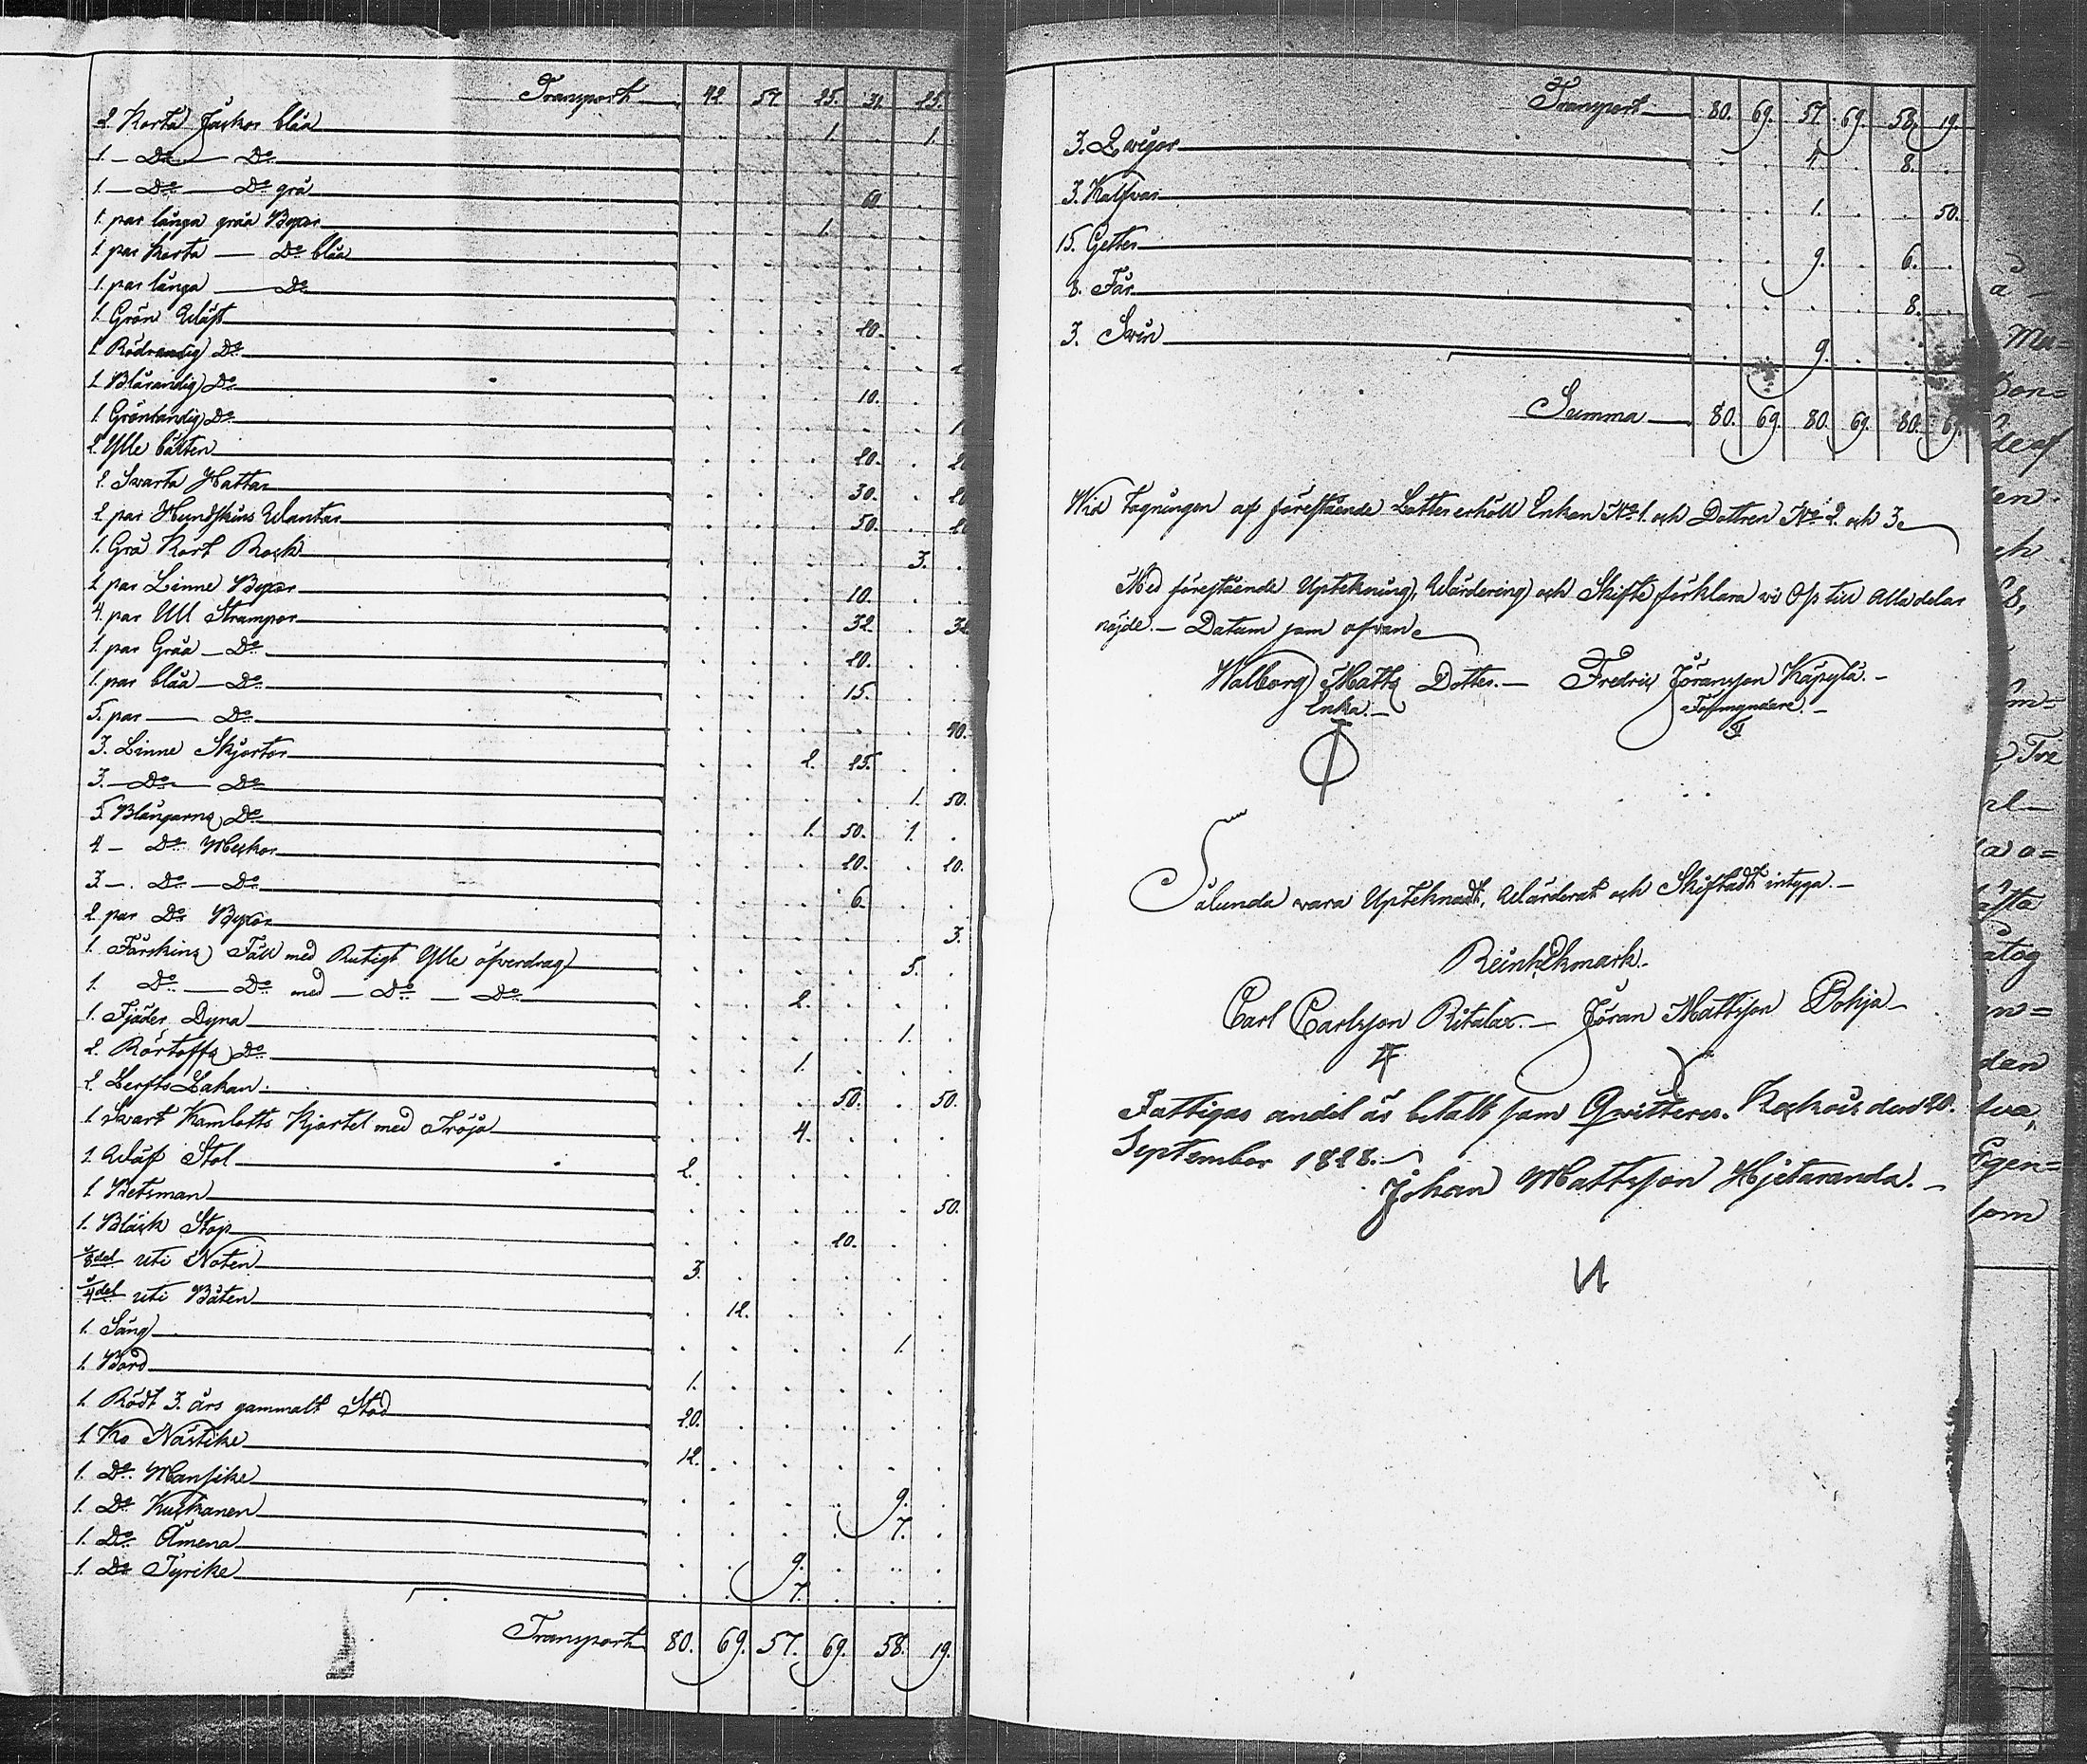 Transport 42. 57. 25. 31. 25.
2. Korta Jackor blåa 1. 1.
1. — D:o — D:o
1. — D:o — D:o grå 60
1. par långa gråa Byxor 1.
1. par Korta — D:o blåa
1. par långa — D:o
1. Grön Wäst 20.
1. Rödrandig D:o
1. Blårandig D:o 10.
1. Grönrandig D:o
2. Ylle bälten 20.
2. Swarta Hattar 30.
2. par Hundskins Wantar 50.
1. Grå Kort Rock 3.
2. par Linne Byxor 10.
4. par Ull Strumpor 32. 32
1. par Gråa — D:o 20.
1. par blåa — D:o 15.
5. par — D:o 40.
3. Linne Skjortor 2. 25.
3. — D:o — D:o 1. 50.
5. Blångarns D:o 1. 50. 1.
4 — D:o Meckor 20. 20.
3. — D:o — D:o 6.
2. par D:o Byxor 3.
1. Fårskins Fäll med Rutigt Ylle öfverdrag 5.
1. D:o — D:o med — D:o — D:o 2.
1. Fjäder Dyna 1.
2. Rörtoffs D:o 1.
2. Lerfts Lakan 50. 50.
1 Swart Kamlotts Kjortel med Tröja 4.
1. Wäf Stol 2.
1. Betsman 50.
1. Bläck Stop 20.
1/8 del uti Noten 3.
1/4 del uti Båten 12.
1. Säng 1.
1. Bord 1.
1. Rödt 3. års gammalt Stod 20.
1. Ko Nästike 12.
1. D:o Mansike 9.
1. D:o Kuckanen 7.
1. D:o Ämena 9.
1. D:o Tyrike 7.
Transport 80. 69. 57. 69. 58. 19.
Transport 80. 69. 57. 69. 58. 19.
3. Qwigor 4. 8.
3. Kalfvar 1. 50.
15. Getter 9. 6.
8. Får 8.
3. Swin 9.
Summa 80. 69. 80. 69. 80. 69.
Wid tagningen af förestående Lotter erhöll Enkan N:o 1. och Dottren N:o 2. och 3.
Med föreståënde Uptekning, Wärdering och Skifte förklara vi Oss till Alla delar
nöjde. — Datum som ofvan.
Walborg Matts Dotter. — Fredric Jöransson Käpylä. —
Enka. — Förmyndare. —
Sålunda vara Upteknadt, Wärderat och Skiftadt intyga. —
Reinh Ekmark.
Carl Carlsson Ritalax. — Jöran Mattsson Bohja —
Fattigas andel är betalt som Qvitteres. Kackois den 20.
September 1828. —
Johan Mattsson Hjetaranda. —